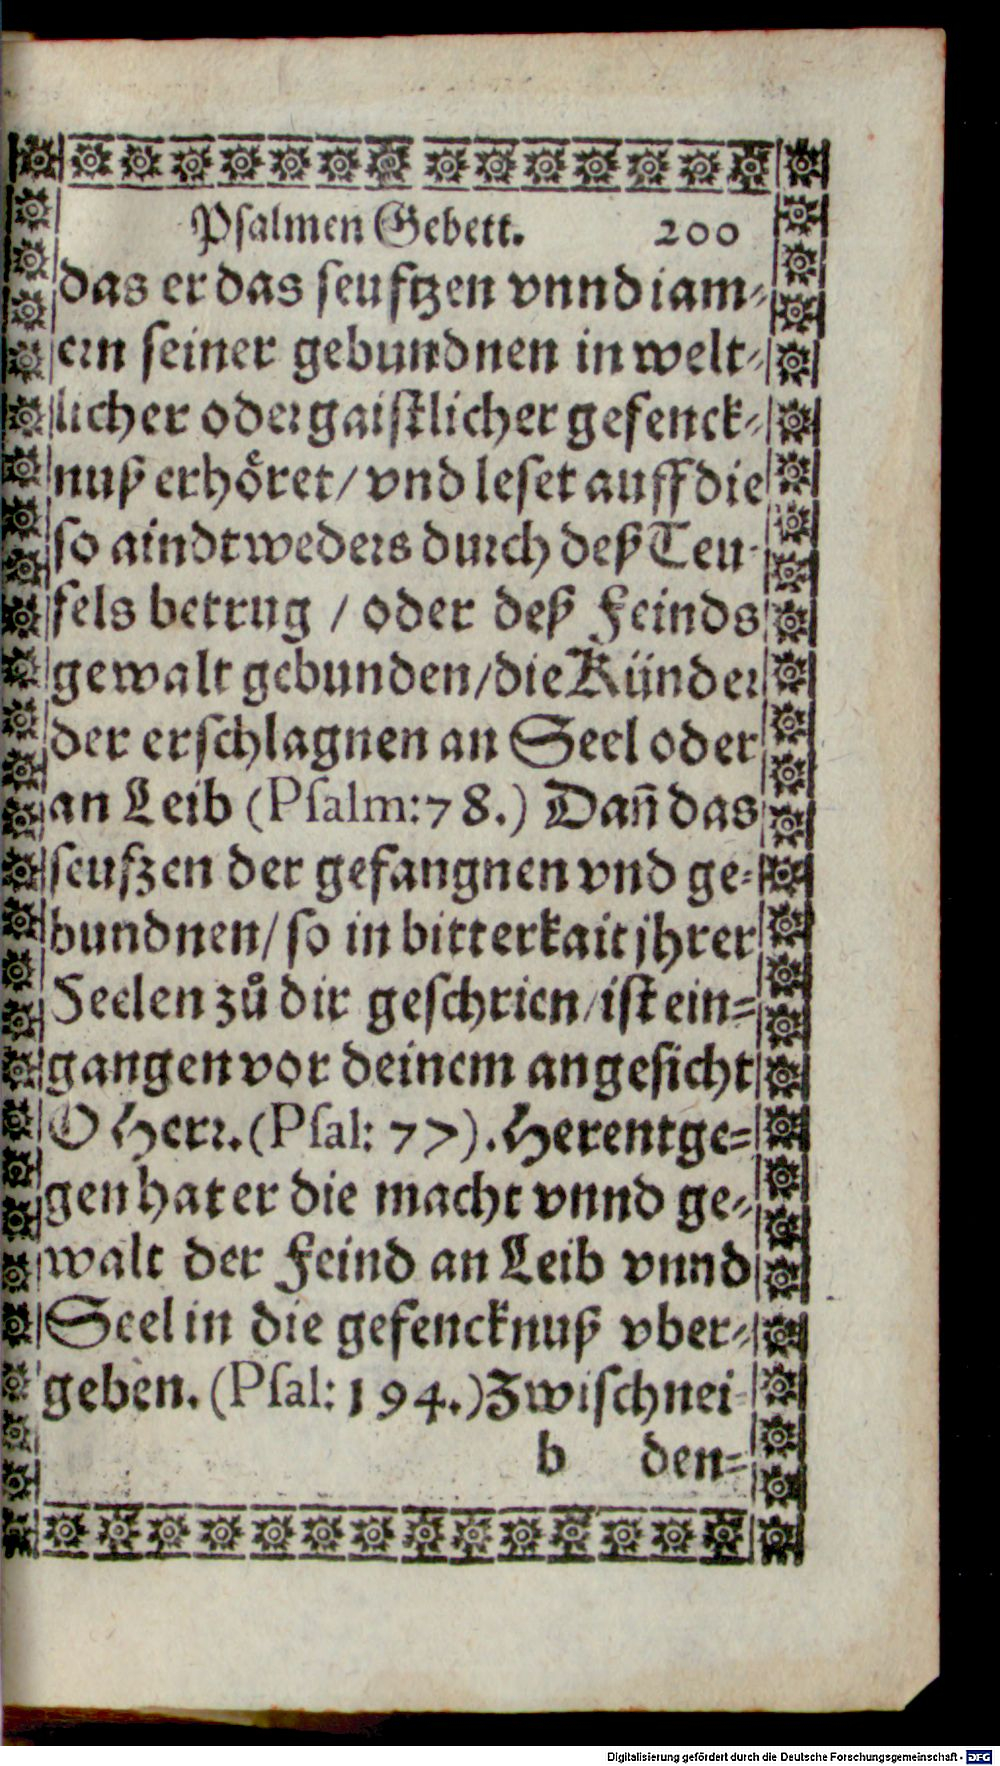 Psalmen Gebett. 200
das er das seuftzen vnnd iam-
ern seiner gebundnen in welt-
licher oder gaistlicher gefenck-
nuß erhöret/ vnd leset auff die
so aindtweders durch deß Teu-
fels betrug / oder deß Feinds
gewalt gebunden/die Künder
der erschlagnen an Seel oder
an Leib (Psalm:78.) Dañ das
seufzen der gefangnen vnd ge-
bundnen/ so in bitterkait jhrer
Seelen zů dir geschrien/ist ein-
gangen vor deinem angesicht
O Herr. (Psal: 77). Herentge-
gen hat er die macht vnnd ge-
walt der Feind an Leib vnnd
Seel in die gefencknuß vber-
geben. (Psal: 194.) Zwischnei-
b den-
Digitalisierung gefördert durch die Deutsche Forschungsgemeinschaft - DFG